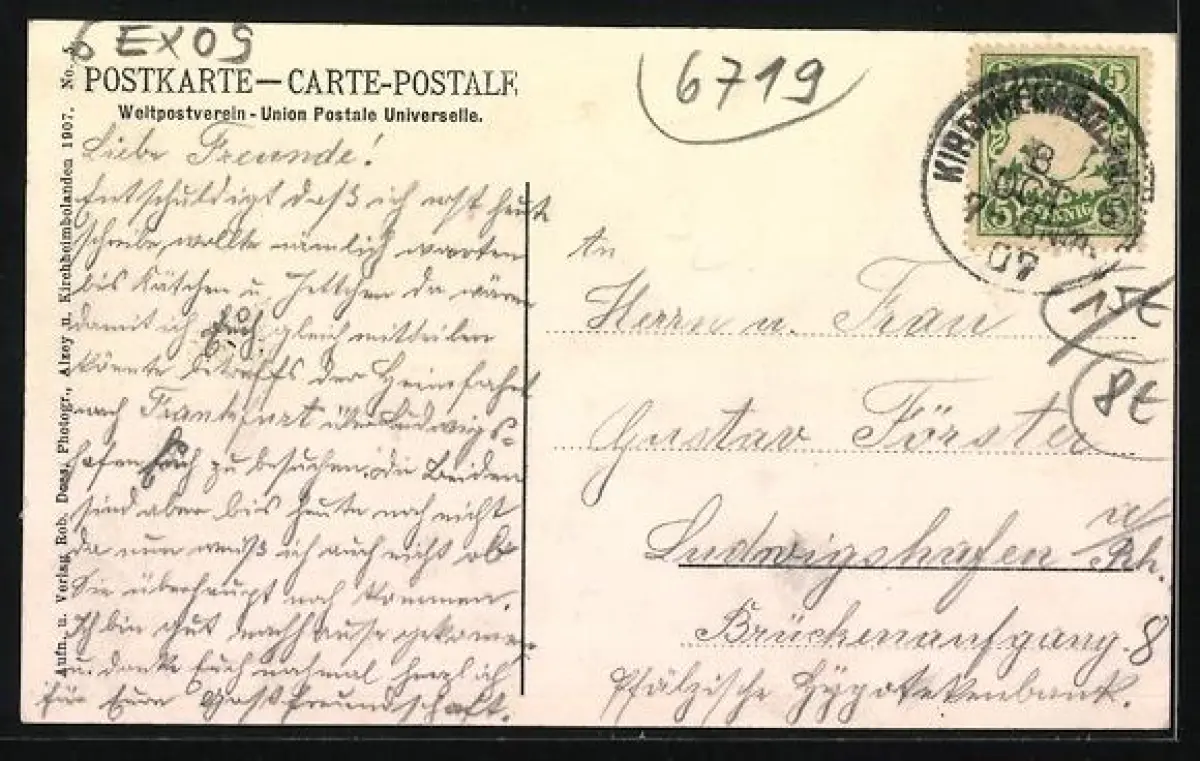 6 EX05
POSTKARTE — CARTE-POSTALE
Weltpostverein - Union Postale Universelle.
6719
Aufn. u. Verlag Rob. Photogr., Alzey u. Kirchheimbolanden 1907. No. 5.
Liebe Freunde!
Entschuldigt daß ich erst heute
schreibe, wollte nämlich warten
bis Kätchen u. Jettchen da wären
damit ich Euch gleich mitteilen
könnte betreffs der Heimfahrt
nach Frankfurt über Ludwigs-
hafen Euch zu besuchen. Die Beiden
sind aber bis heute noch nicht
da nun weiß ich auch nicht ob
Sie überhaupt noch kommen.
Ich bin gut nach Hause gekommen
u. danke Euch nochmal herzlich
für Eure Gastfreundschaft.
5 5
5 PFENNIG 5
8
OCT
07
An
Herrn u. Frau
Gustav Förster
Ludwigshafen a/Rh.
Brückenaufgang 8
Pfälzische Hypotekenbank.
15t
8t